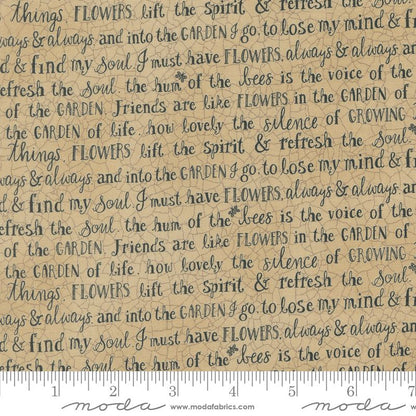 things. FLOWERS lift the Spirit & refresh the Soul
always & always and into the GARDEN I go, to lose my mind &
d & find my Soul I must have FLOWERS, always & always an
refresh the Soul. the hum of the bees is the voice of the
of the GARDEN. Friends are like FLOWERS in the GARDEN of
the GARDEN of life. how lovely the silence of GROWING
things. FLOWERS lift the Spirit & refresh the Soul
ways & always and into the GARDEN I go, to lose my mind & fi
d & find my Soul I must have FLOWERS, always & always an
efresh the Soul. the hum of the bees is the voice of the
of the GARDEN. Friends are like FLOWERS in the GARDEN of
the GARDEN of life. how lovely the silence of GROWING
things. FLOWERS lift the Spirit & refresh the Soul
ways & always and into the GARDEN I go, to lose my mind & f
& find my Soul I must have FLOWERS, always & always an
efresh the Soul. the hum of the bees is the voice of the
1 2 3 4 5 6 7
moda www.modafabrics.com moda